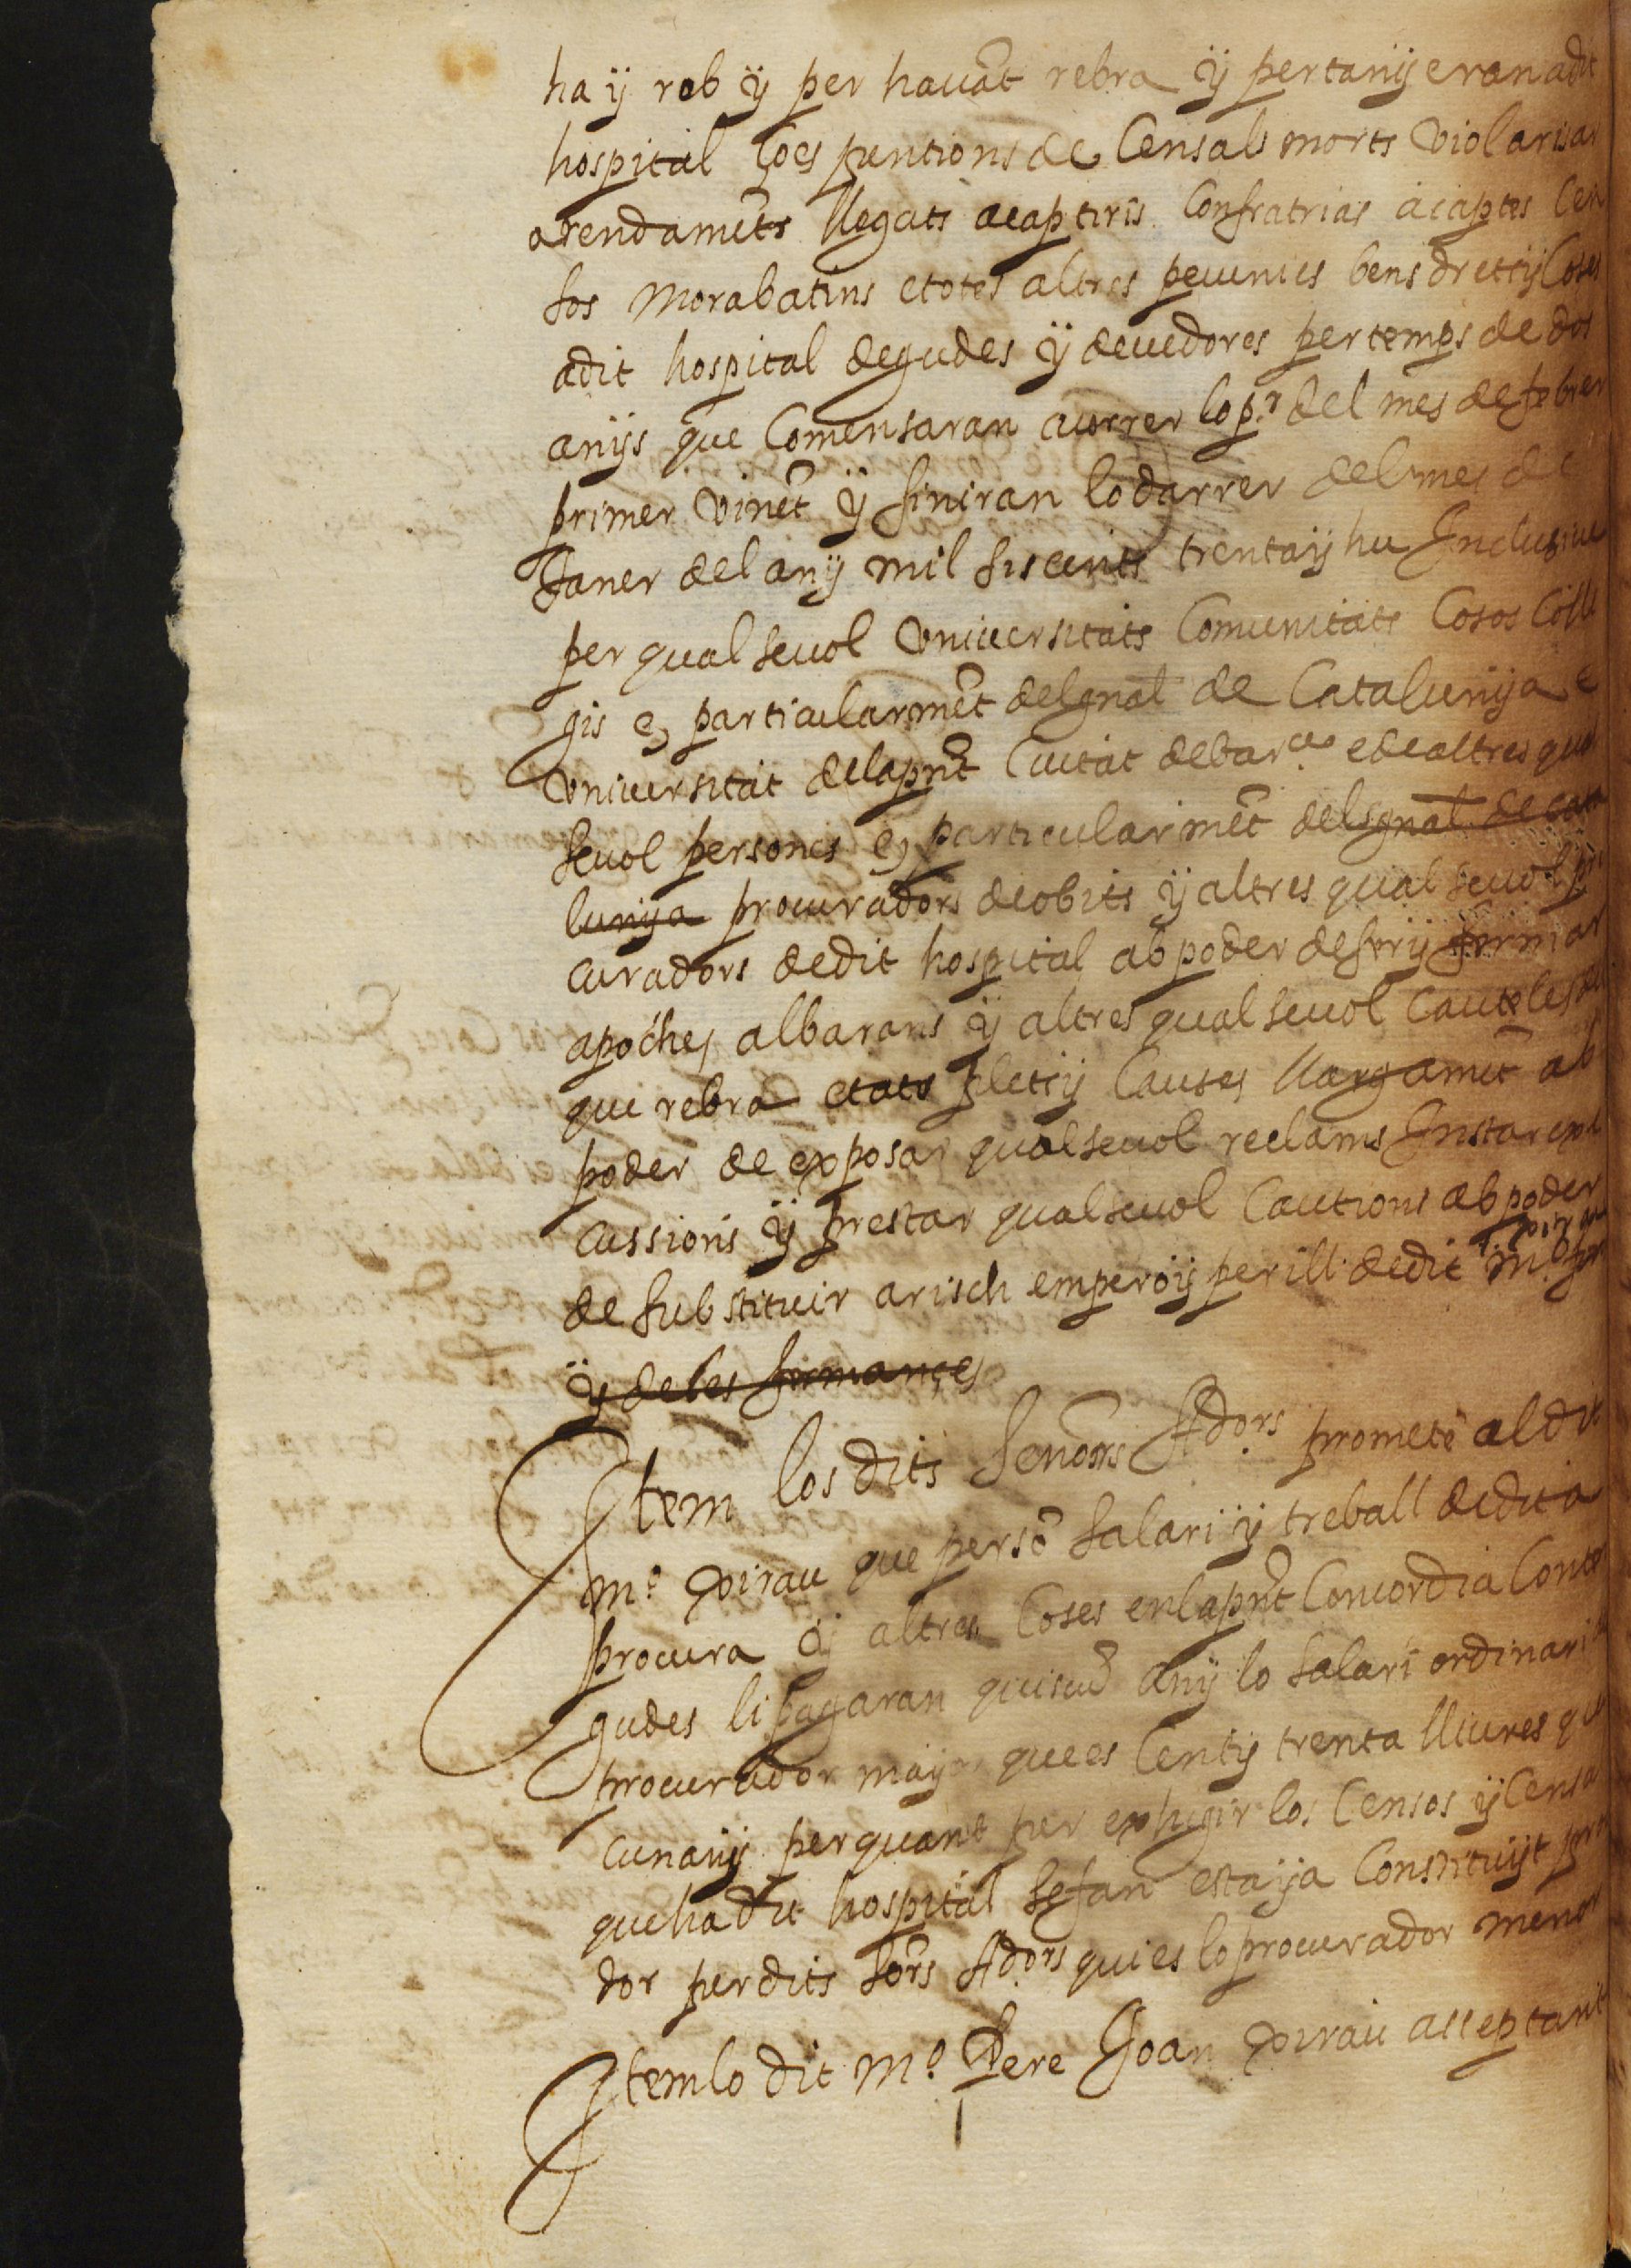 ha ÿ reb ÿ per hauāt rebra ÿ pertanÿeran a dit
hospital ço es pentions de Censals morts Violaris ar
arendamēts llegats acaptiris Confratrias acaptes Cen
sos Morabatins e totes altres pecunies bens drets ÿ Coses
a dit hospital degudes ÿ deuedores per temps de dos
anÿs que Comensaran a correr lo pr. del mes de febrer
primer Vinēt ÿ finiran lo darrer del mes de
Janer del anÿ mil siscents trenta ÿ hu Inclusiue
per qualseuol Vniuersitats Comunitats Cosos Colle
gis e, particularmēt del gnāl de Catalunÿa e
Vniuersitat de la pnt̄ Ciutat de barna. e de altres qual
seuol persones e, particularmēt del gnāl de cata
lunÿa procuradors de obits ÿ altres qualseuol pro
curadors de dit hospital ab poder de fer ÿ firmar
apoches, albarans ÿ altres qualseuol Cauteles del
que rebra etats pletsÿ Causes llargamēt ab
poder de exposar qualseuol reclams Instar exe
cussions ÿ prestar qualseuol Cautions ab poder
de substituir a risch empero ÿ perill de dit Mo.
ÿ de les firmançes
Item los dits Senōrs Adors prometē al dit
Mo. Poirau que per sō salari ÿ treball de dita
procura ÿ altres Coses en la pnt̄ Concordia Contin
gudes li pagaran quiscū anÿ lo salari ordinari de
procurador major que es Cent ÿ trenta lliures quis
cun anÿ per quant per exhigir los Censos ÿ Censals
que ha dit hospital se fan esta ÿa Constituÿt procura
dor per dits Sōrs Adors qui es lo procurador menor
Item lo dit Mo. Pere Joan Poirau acceptant